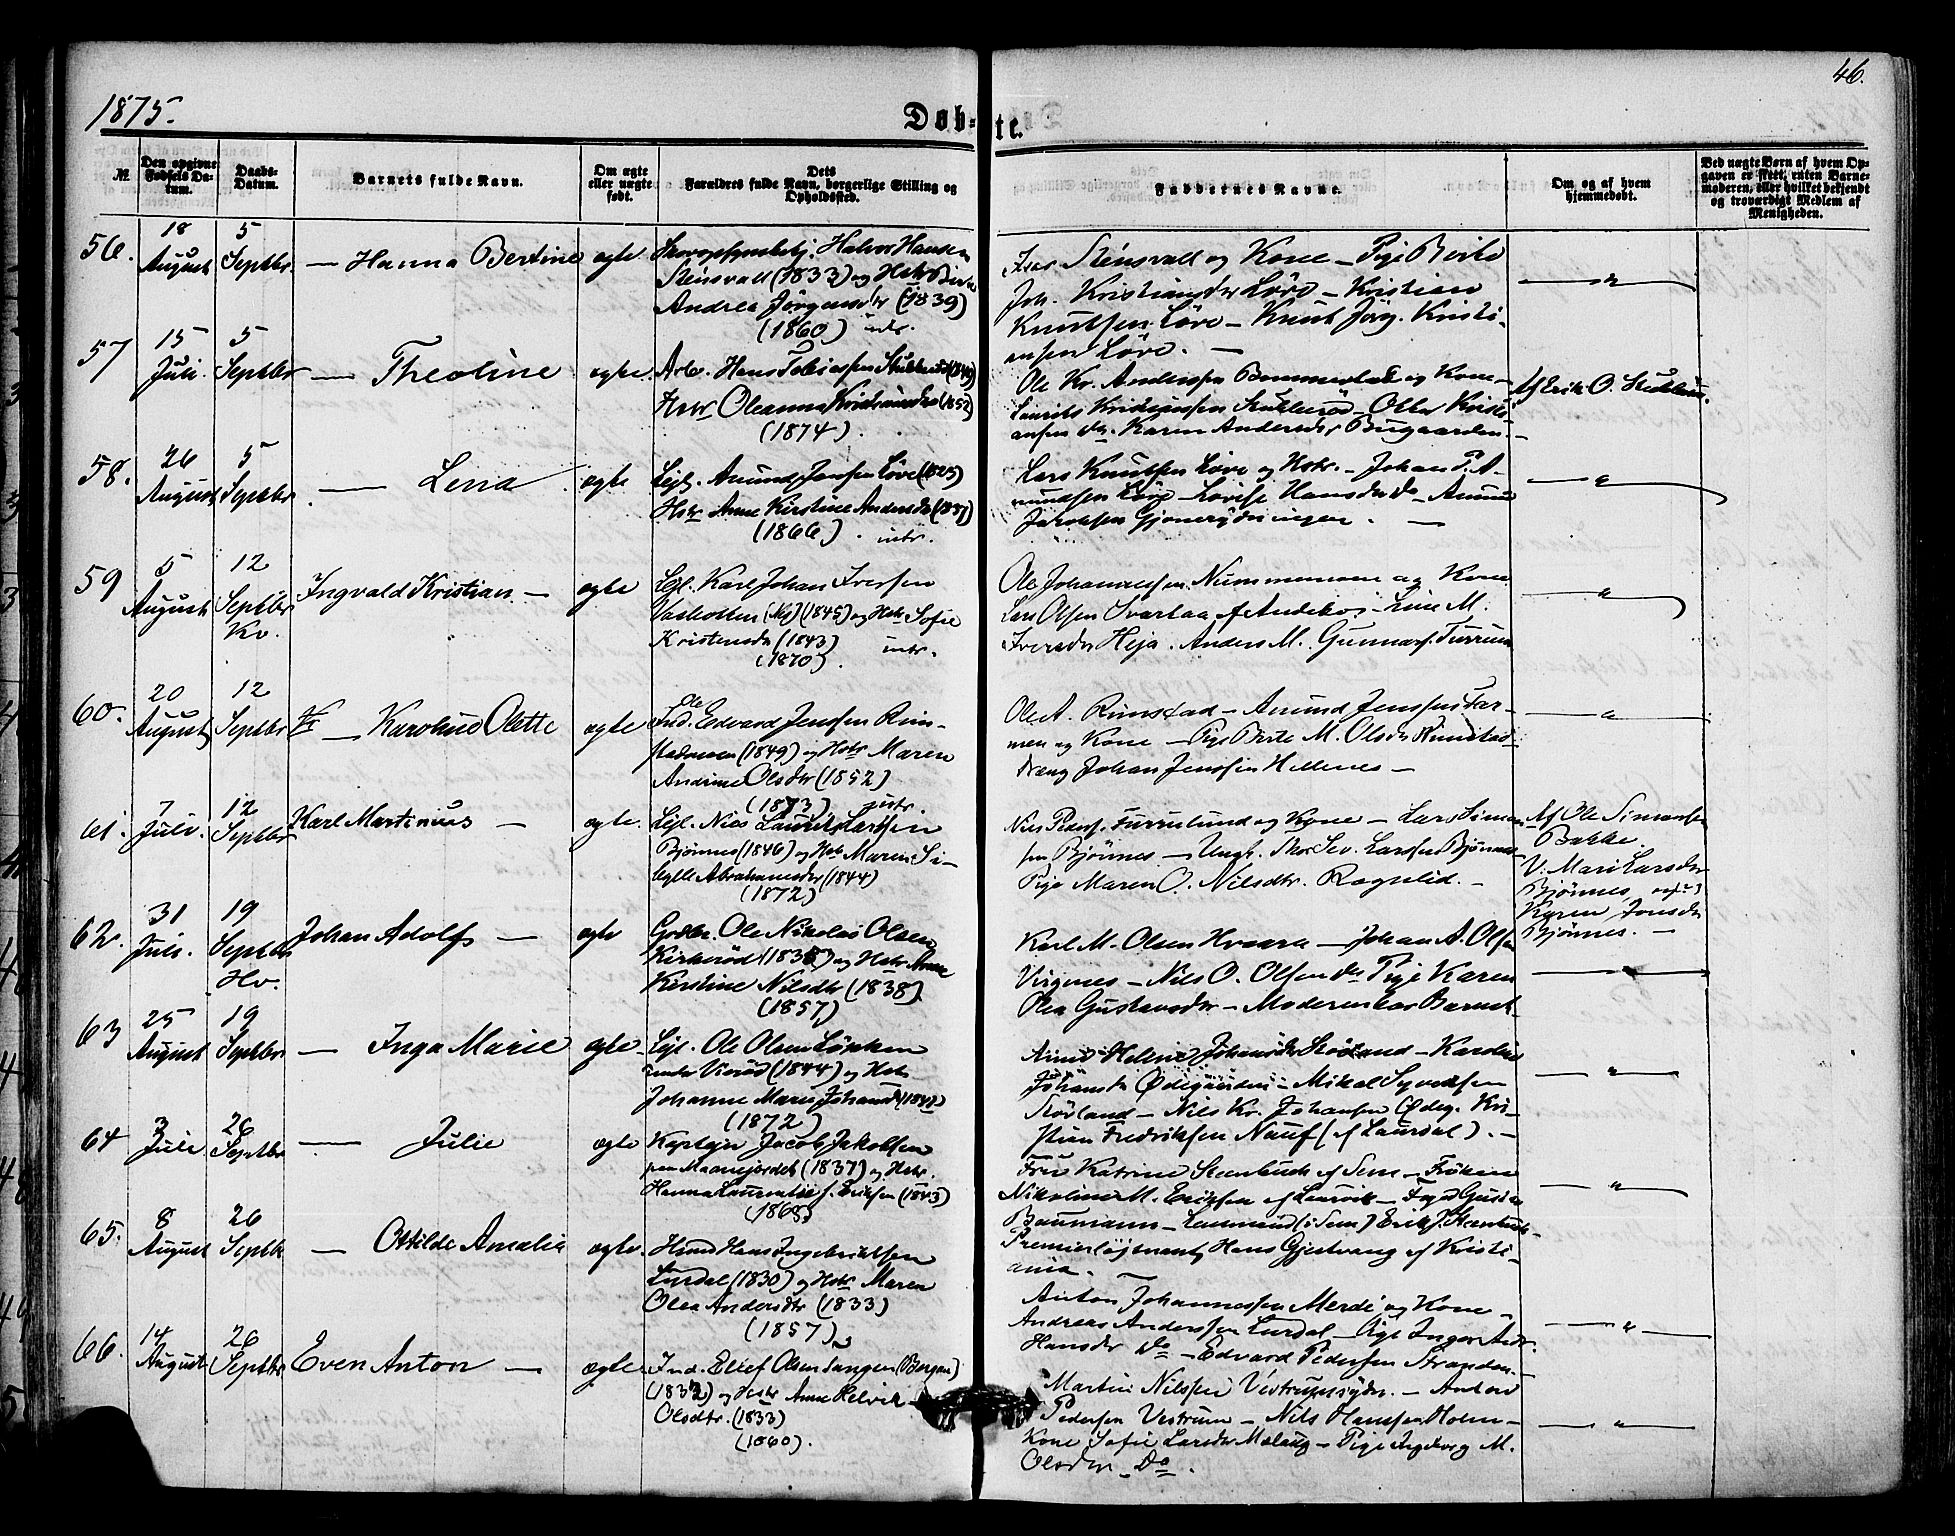 46.
1875.
Døb-te.
№
Den opgivne Fødsels Da-tum.
Daabs-Datum.
Barnets fulde Navn.
Om ægte eller uægte født.
Dets Forældres fulde Navn, borgerlige Stilling og Opholdssted.
Faddernes Navne.
Om og af hvem hjemmedøbt.
Ved uægte Børn af hvem Op-gaven er skett, enten Barne-moderen, eller hvilket bekjendt og troværdigt Medlem af Menigheden.
56. 18 August 5 Septbr — Hanna Bertine ægte
Halvor Hansen
Steinsvall (1833) og Hstr
Andrea Jørgensdtr (1839)
(1860) intr.
Steinsvall og Kone — Pige Berte
Joh. Kristiansdtr Løve — Kristian
Knutsen Løve — Knut Jörg. Kristi-
ansen Løve. —
— " —
57 15 Juli. 5 Septbr — Theoline ægte
Arb. Hans Tobiassen
Hstr Oleanna Kristiansdtr (1852)
(1874).
Ole Kr. Anderssen og Kone —
Laurits Kristianssen — Kristi-
ansen do. Karen Andersdtr Bugaarden. —
Af Erik O.
58. 26 August 5 Septbr — Lena ægte
Lejl. Amund Jensen Løve (1825)
Hstr Anne Kirstine Andersdtr (1837)
(1866). intr.
Lars Knutsen Løve og Hstr. — Johan P. A-
mundsen Løve — Lovise Hansdtr do — Amun
Jakobsen —
— " —
59 5 August 12 Septbr Kv. Ingvald Kristian — ægte
Lejl. Karl Johan Iversen
(1845) og Hstr Sofie
Kristensdtr (1843)
(1870). intr.
Ole Johannessen Nummemoen og Kone
Lars Olsen Svartaa af Andebu — Line M.
Iversdtr Heja. Anders M. Gunnars.
— " —
60. 20 August 12 Septbr — Karoline Olette ægte
Ole
Ind. Edvard Jenssen Rim-
stadmoen (1849) og Hstr Maren
Andrine Olsdtr (1852)
(1873) intr.
Ole A. Rimstad — Amund Jenssen Far-
men og Kone — Pige Berte M. Olsdtr Rimstad
dreng Johan Jenssen Hellenes —
— " —
61. 7 Juli. 12 Septbr Karl Martinius — ægte.
Lejl. Nils Laurits Larssen
Bjönnes (1846) og Hstr Maren Si-
bylle Abrahamsdtr (1844)
(1872)
Nils Peders. Furulund og Kone — Lars Simen
sen Bjönnes — Ungk. Thor Sev. Larssen Bjönnes —
Pige Maren O. Nilsdtr. —
Af Ole Simonsen
Bakke
V. Mari Larsdtr
Bjönnes, og
Karen Jonsdtr
Bjönnes. —
62. 31 Juli. 19 Septbr Hv. Johan Adolf — ægte
Grdbr. Ole Nikolai Olsen
Kirkerød og Hstr Anne
Kirstine Nilsdtr (1838)
(1857)
Karl M. Olsen Hvaara — Johan A. Olsen
Virgenes — Nils O. Olsen do Pige Karen
Olea Gustavsdtr — Moderen bar Barnet.
— " —
63 25 August 19 Septbr — Inga Marie ægte
Lejl. Ole Olsen Løkken
(1844) og Hstr
Johanne Marie
(1872)
Anne Helene Johansdtr — Karoline
Johansdtr Ødegaarden — Mikal Syvertsen
— Nils Kr. Johansen Ødeg. Kri-
stian Fredriksen Nauf (af Laurdal). —
— " —
64 3 Juli 26 Septbr — Julie ægte
Kaptejn Jacob Jakobsen
(1837) og Hstr.
Hanna f. Eriksen (1843)
Fru Katrine Steenbuch af Sem — Frøken
Nikoline M. Eriksen af Laurvik — Frøk Gusta
Baumann — Lensmand (i Sem) Erik J. Steenbuch
Premierløjtnant Hans Gjestvang af Kristi-
ania.
— " —
65. 8 August 26 Septbr — Ottilde Amalia ægte
Hans Ingebriktsen
Lurdal (1830) og Hstr Maren
Olea Andersdtr (1833)
(1857)
Anton Johannessen Merde og Kone —
Andreas Anderssen Lurdal — Pige Inger Andr.
Hansdtr Do — Edvard Pedersen Stranden.
— " —
66. 14 August 26 Septbr Even Anton — ægte
Ind. Ellef Olsen Tangen (Bergan)
og Hstr Anne Helvik
Olsdtr. (1833)
(1860).
Martin Nilssen — Anton
Pedersen Vestrum — Nils Hanssen Holm —
Kone Sofie Larsdtr — Pige Ingeborg M.
Olsdtr — Do.
— " —